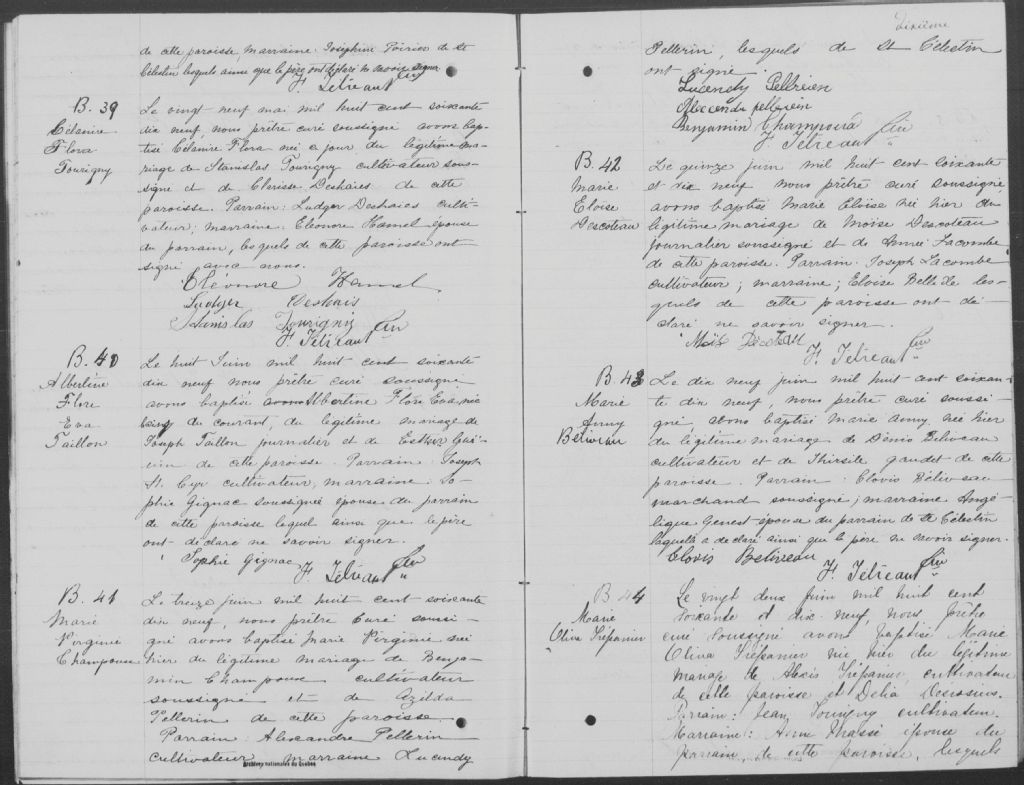 de cette paroisse marraine: Joséphine Poirier de St
Célestin lesquels ainsi que le père ont déclaré ne savoir signer
B. 39
Célanire
Flora
Tourigny
Le vingt neuf mai mil huit cent soixante
dix neuf, nous prêtre curé soussigné avons bap-
tisé Célanire Flora née ce jour du légitime ma-
riage de Stanislas Tourigny cultivateur sous-
signé et de Clarisse Deshaies de cette
paroisse. Parrain: Ludger Deshaies culti-
vateur; marraine: Eléonore Hamel épouse
du parrain, lesquels de cette paroisse ont
signé avec nous.
Eleonore Hamel
Ludger Deshais
Stanislas Tourigny
B. 40
Alberline
Flore
Eva
Taillon
Le huit Juin mil huit cent soixante
dix neuf nous prêtre curé soussigné
avons baptisé Alberline Flore Eva née
cinq du courant, du légitime mariage de
Joseph Taillon journalier et de Esther
de cette paroisse. Parrain: Joseph
St. Cyr cultivateur; marraine: So-
phie Gignac soussignée épouse du parrain
de cette paroisse lequel ainsi que le père
ont déclaré ne savoir signer.
Sophie Gignac
B. 41
Marie
Virginie
Champoux
Le treize juin mil huit cent soixante
dix neuf, nous prêtre curé soussi-
gné avons baptisé Marie Virginie née
hier du légitime mariage de Benja-
min Champoux cultivateur
soussigné et de Azilda
Pellerin de cette paroisse.
Parrain: Alexandre Pellerin
cultivateur marraine Lucendy
Archives nationales du Québec
Dixième
Pellerin, lesquels de St Célestin
ont signé.
Lucendy Pellerien
Alexendre pellerien
Benjamin Champoux
B. 42
Marie
Eloise
Descoteau
Le quinze juin mil huit cent soixante
et dix neuf nous prêtre curé soussigné
avons baptisé Marie Eloise née hier du
légitime mariage de Moise Descoteau
journalier soussigné et de Aimée Lacombe
de cette paroisse. Parrain: Joseph Lacombe
cultivateur; marraine; Eloise Belle
quels de cette paroisse ont dé-
claré ne savoir signer.
B. 43
Marie
Anny
Béliveau
Le dix neuf juin mil huit cent soixan-
te dix neuf, nous prêtre curé soussi-
gné, avons baptisé Marie Anny née hier
du légitime mariage de Dénis Béliveau
cultivateur et de Thirsite gaudet de cette
paroisse. Parrain: Clovis Béliveau
marchand soussigné; marraine Angé-
lique Genest épouse du parrain de St Célestin
laquelle a déclaré ainsi que le père ne savoir signer.
Clovis Beliveau
B 44
Marie
Oliva Trépanier
Le vingt deux juin mil huit cent
soixante et dix-neuf nous prêtre
curé soussigné avons baptisé Marie
Oliva Trépanier née hier du légitime
mariage de Alexis Trépanier, cultivateur
de cette paroisse et Delia Desrosiers.
Parrain: Jean Tourigny cultivateur.
Marraine: Anne Massé épouse du
parrain, de cette paroisse, lesquels